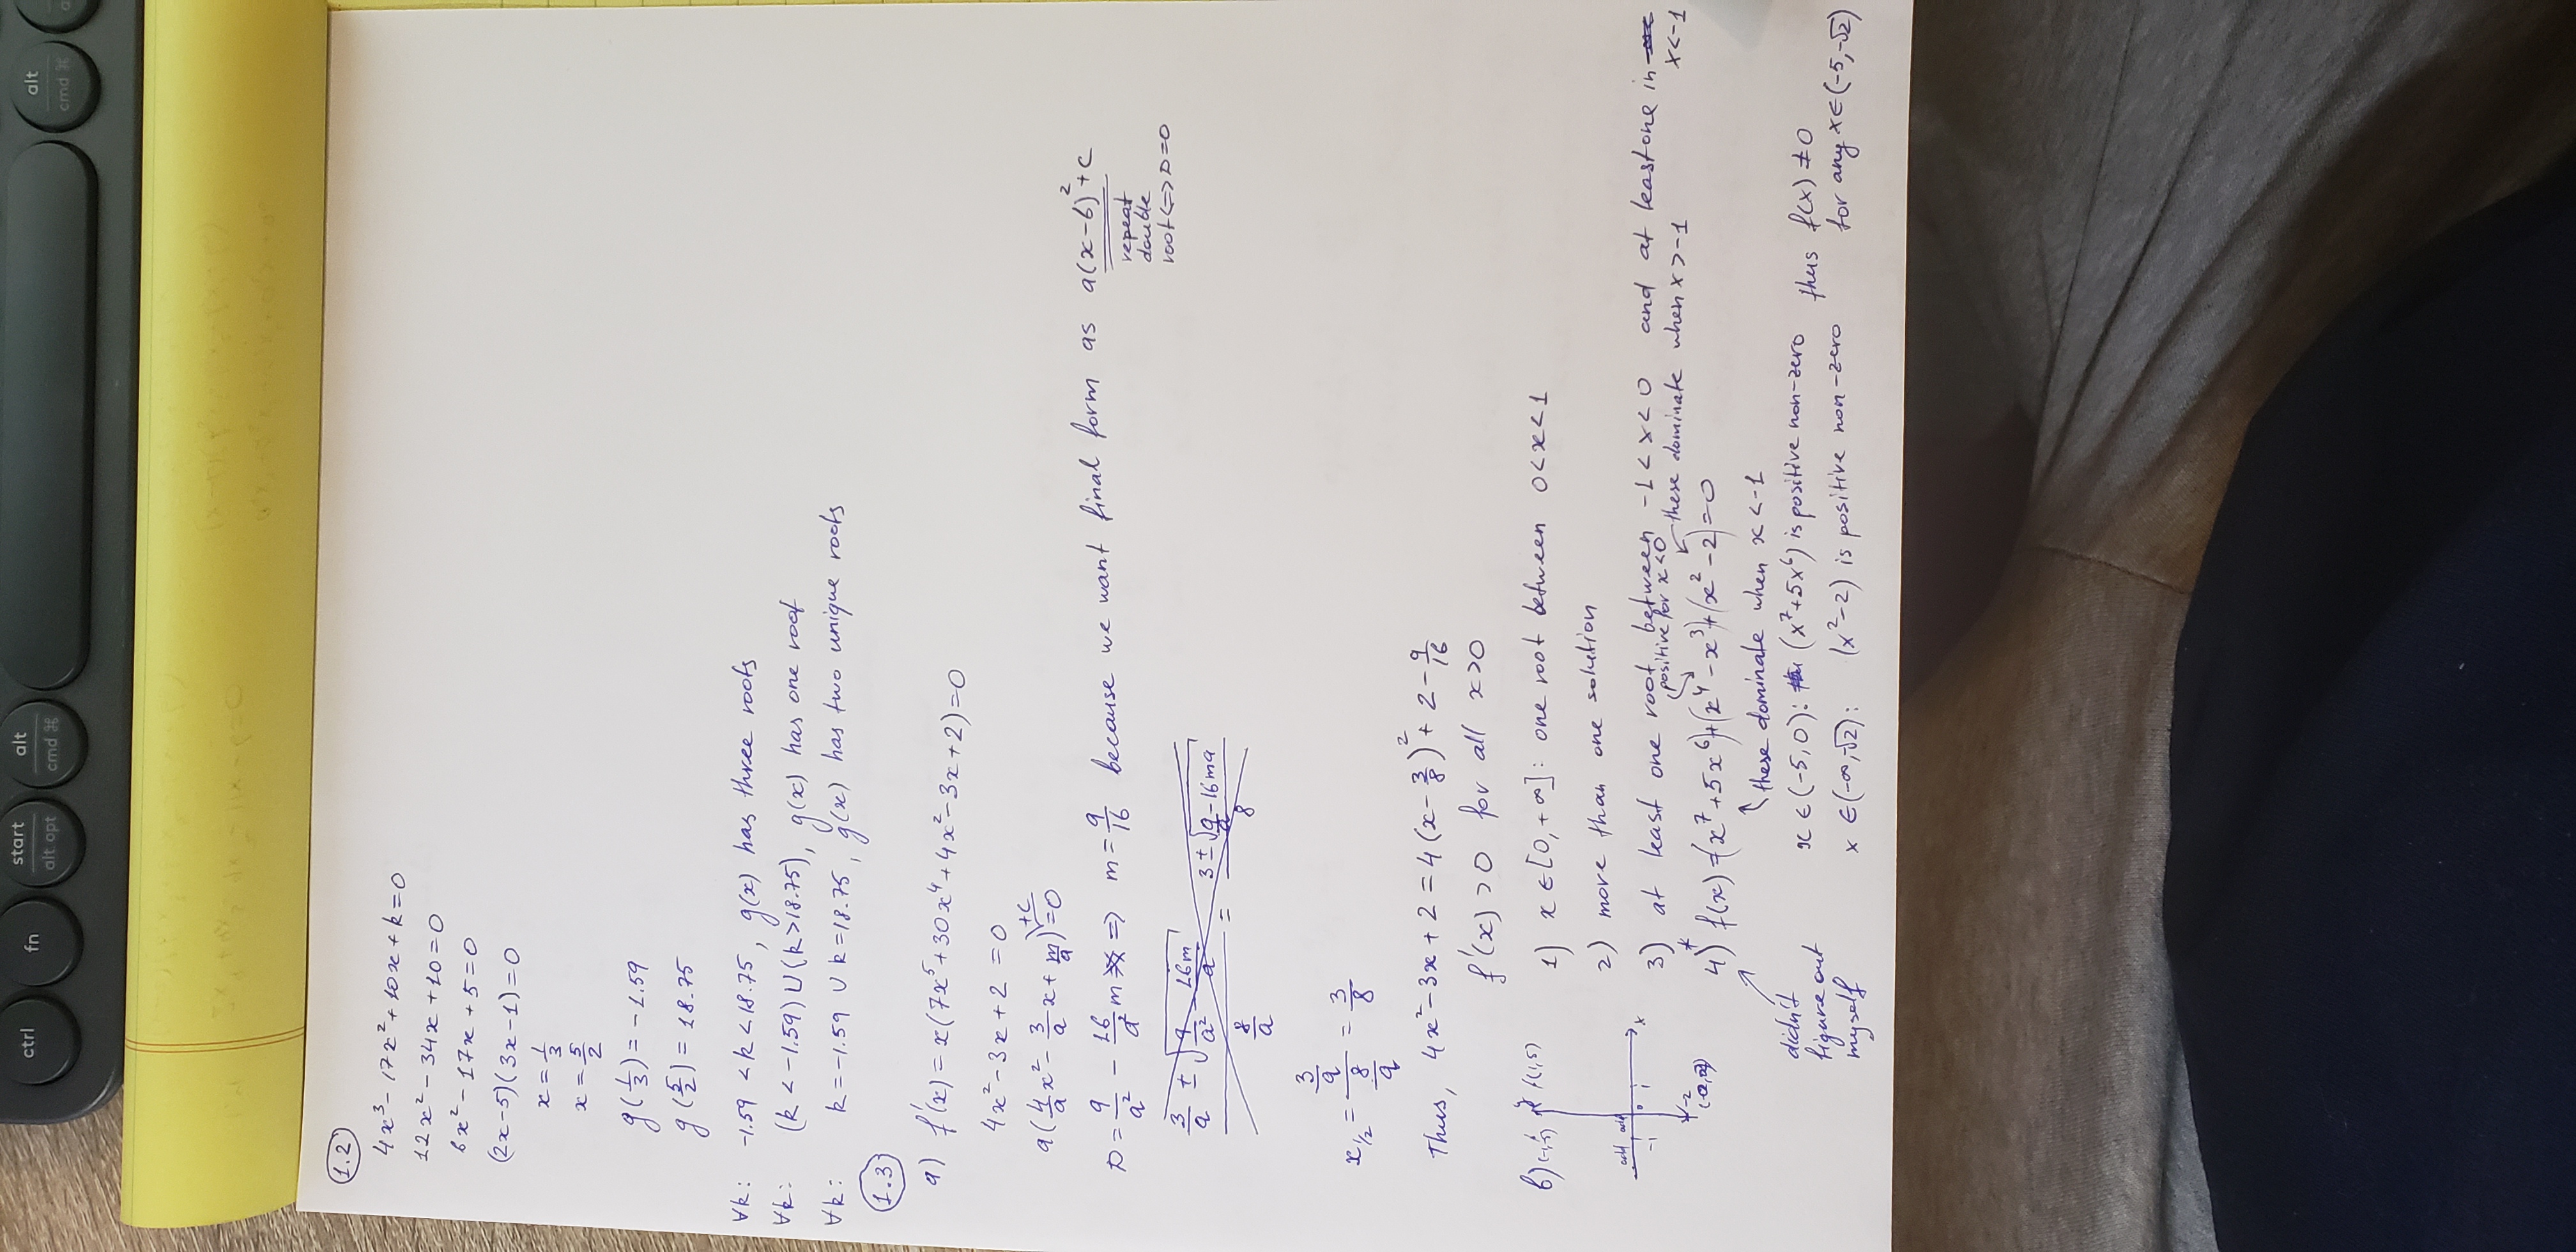 ctrl fn start alt opt alt cmd ⌘ alt cmd ⌘
1.2
4x³ - 17x² + 10x + k = 0
12x² - 34x + 10 = 0
6x² - 17x + 5 = 0
(2x-5)(3x-1) = 0
x = 1/3
x = 5/2
g(1/3) = -1.59
g(5/2) = 18.75
∀k: -1.59 < k < 18.75, g(x) has three roots
∀k: (k < -1.59) ∪ (k > 18.75), g(x) has one root
∀k: k = -1.59 ∪ k = 18.75, g(x) has two unique roots
1.3
a) f'(x) = x(7x⁵ + 30x⁴ + 4x² - 3x + 2) = 0
4x² - 3x + 2 = 0
a(4/a x² - 3/a x + m/a) + c = 0
D = 9/a² - 16/a² m => m = 9/16 because we want final form as a(x-b)² + c
repeat
double
root <=> D=0
3/a ± √(9/a² - 16m/a) / 8/a = 3 ± √(9 - 16ma) / 8
x₁/₂ = 3/a / 8/a = 3/8
Thus, 4x² - 3x + 2 = 4(x - 3/8)² + 2 - 9/16
f'(x) > 0 for all x > 0
b) y (1,5)
x
-1 0 1
-2
1) x ∈ [0, +∞]: one root between 0 < x < 1
2) more than one solution
3) at least one root between -1 < x < 0 and at least one in x < -1
positive for x<0
these dominate when x > -1
4)* f(x) = (x⁷ + 5x⁶) + (x⁴ - x³) + (x² - 2) = 0
these dominate when x < -1
didn't
figure out
myself
x ∈ (-5, 0): (x⁷ + 5x⁶) is positive non-zero thus f(x) ≠ 0
x ∈ (-∞, -√2): (x² - 2) is positive non-zero for any x ∈ (-5, -√2)